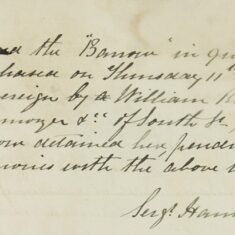 the "Barrow" in qu
chased on Thursday 11th
ereign by a William
monger &c. of South St,
detained her, pendin
with the above
Sergt. Ham